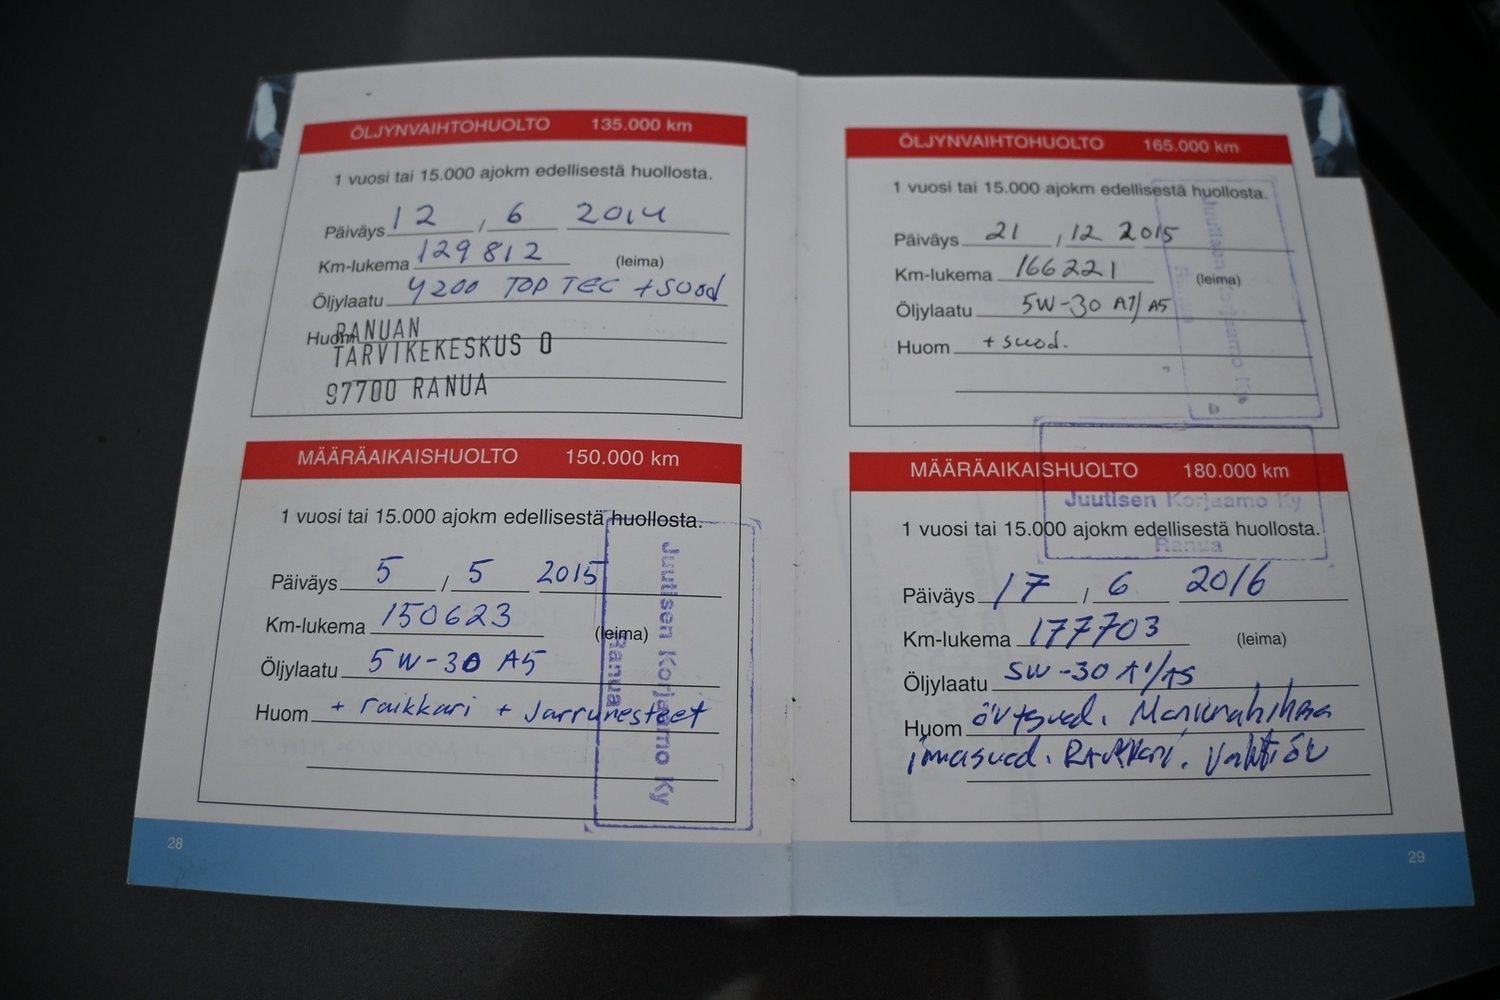 ÖLJYNVAIHTOHUOLTO 135.000 km
1 vuosi tai 15.000 ajokm edellisestä huollosta.
Päiväys 12 / 6 2014
Km-lukema 129812 (leima)
Öljylaatu 4200 TOP TEC + suod
Huom
RANUAN
TARVIKEKESKUS O
97700 RANUA
MÄÄRÄAIKAISHUOLTO 150.000 km
1 vuosi tai 15.000 ajokm edellisestä huollosta.
Päiväys 5 / 5 2015
Km-lukema 150623 (leima)
Öljylaatu 5W-30 A5
Huom + raikkari + Jarrunesteet
Juutisen Korjaamo Ky
Ranua
28
ÖLJYNVAIHTOHUOLTO 165.000 km
1 vuosi tai 15.000 ajokm edellisestä huollosta.
Päiväys 21 / 12 2015
Km-lukema 166221 (leima)
Öljylaatu 5W-30 A1/A5
Huom + suod.
Juutisen Korjaamo Ky
Ranua
MÄÄRÄAIKAISHUOLTO 180.000 km
Juutisen Korjaamo Ky
1 vuosi tai 15.000 ajokm edellisestä huollosta.
Ranua
Päiväys 17 / 6 2016
Km-lukema 177703 (leima)
Öljylaatu 5W-30 A1/A5
Huom öv+suod.
imasuod. Raikkari.
29